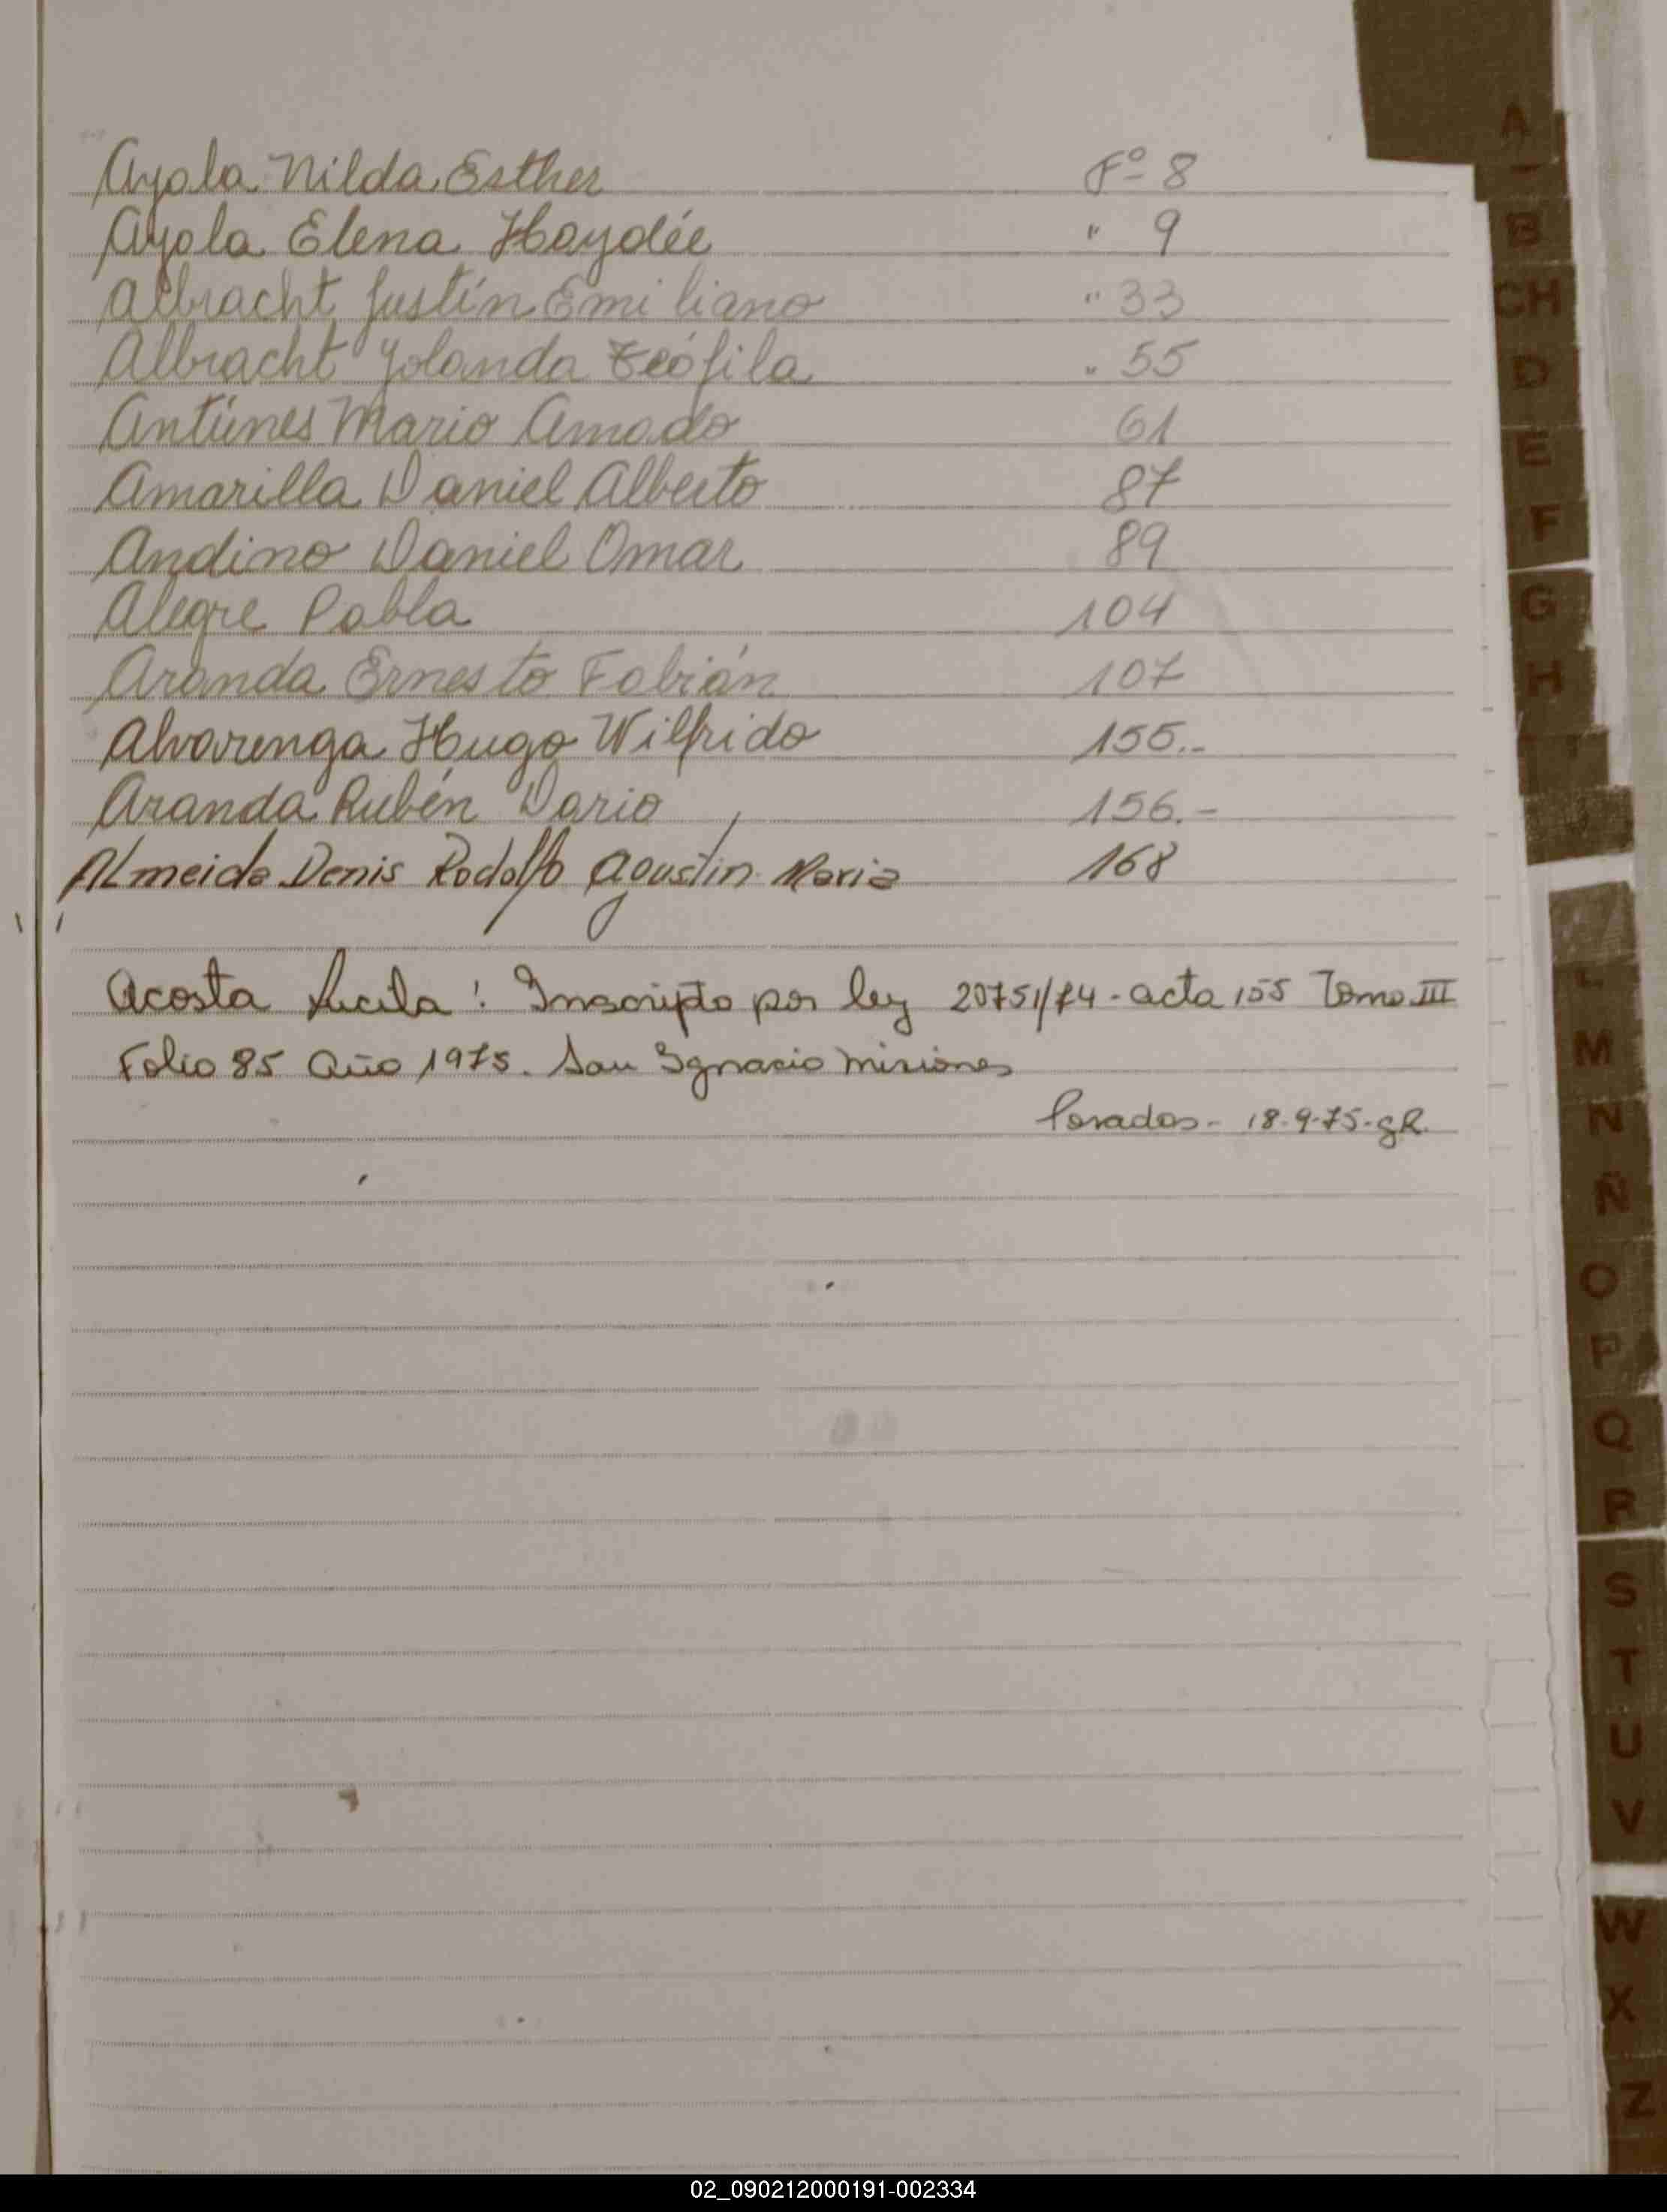 Ayala Nilda Esther Fº 8
Ayala Elena Haydée " 9
Albracht Justín Emiliano " 33
Albracht Yolanda Teófila " 55
Antúnes Mario Amado 61
Amarilla Daniel Alberto 87
Andino Daniel Omar 89
Alegre Pabla 104
Aranda Ernesto Fabián 107
Alvarenga Hugo Wilfrido 155.-
Aranda Rubén Dario 156.-
Almeida Denis Rodolfo Agustín Maria 168
Acosta Lucila: Inscripto por ley 20751/74 - acta 155 Tomo III
Folio 85 Año 1975. San Ignacio Misiones
Posadas - 18-9-75-
A
B
CH
D
E
F
G
H
I
J
L
M
N
Ñ
O
P
Q
R
S
T
U
V
W
X
Z
02_090212000191-002334